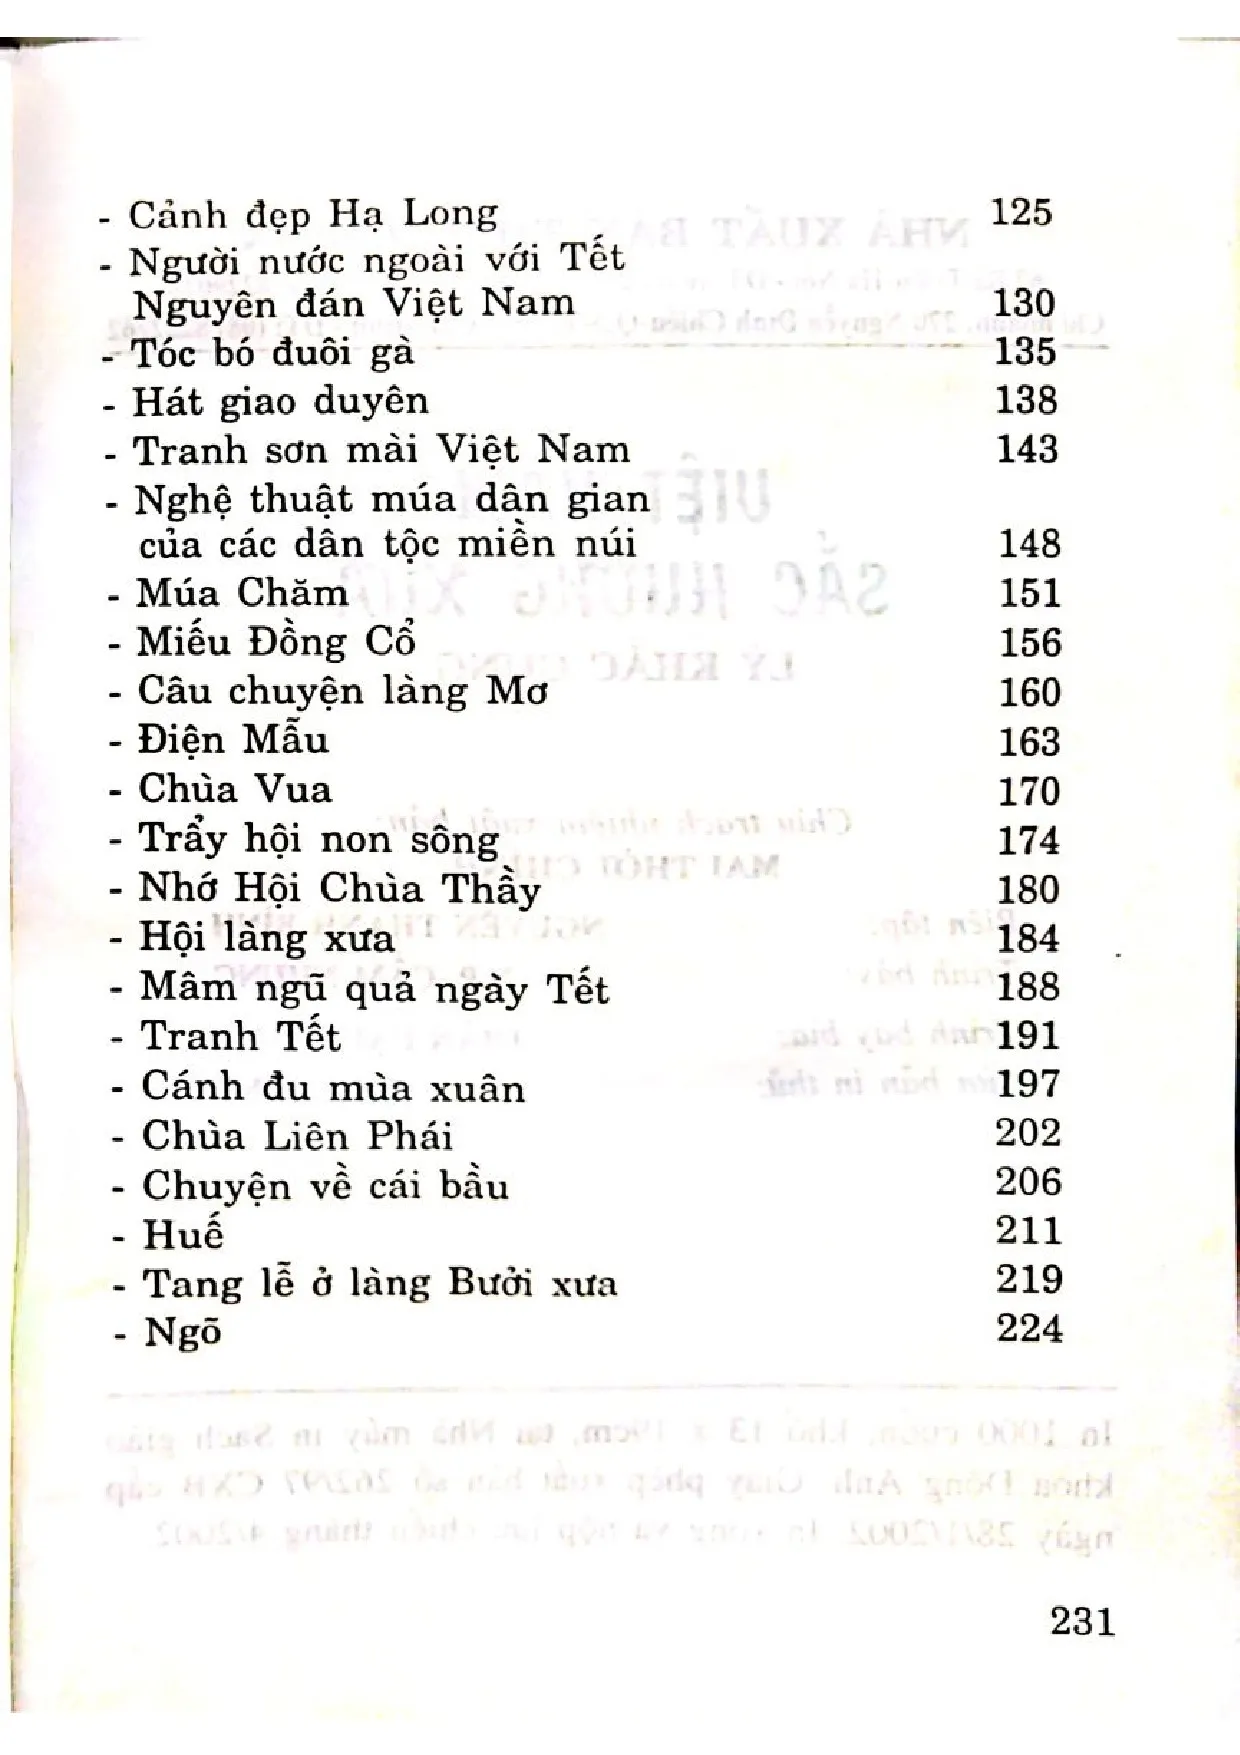 - Cảnh đẹp Hạ Long 125
- Người nước ngoài với Tết
Nguyên đán Việt Nam 130
- Tóc bó đuôi gà 135
- Hát giao duyên 138
- Tranh sơn mài Việt Nam 143
- Nghệ thuật múa dân gian
của các dân tộc miền núi 148
- Múa Chăm 151
- Miếu Đồng Cổ 156
- Câu chuyện làng Mơ 160
- Điện Mẫu 163
- Chùa Vua 170
- Trẩy hội non sông 174
- Nhớ Hội Chùa Thầy 180
- Hội làng xưa 184
- Mâm ngũ quả ngày Tết 188
- Tranh Tết 191
- Cánh đu mùa xuân 197
- Chùa Liên Phái 202
- Chuyện về cái bầu 206
- Huế 211
- Tang lễ ở làng Bưởi xưa 219
- Ngõ 224
231